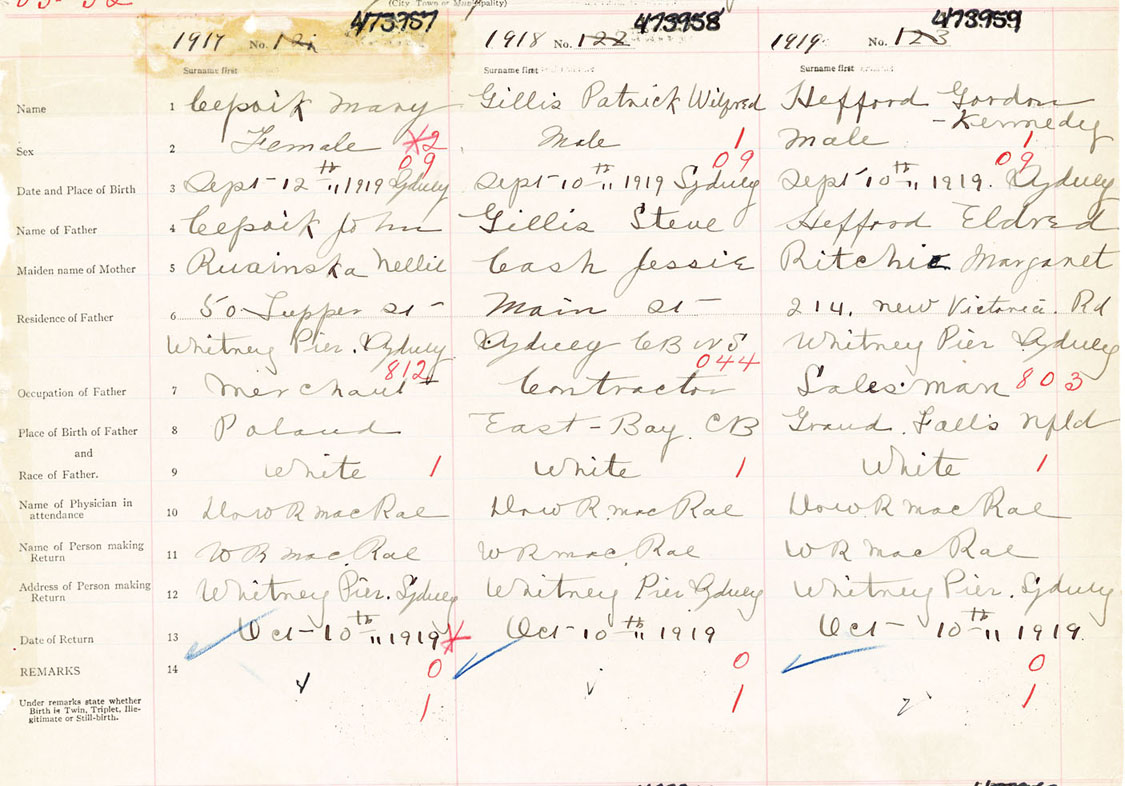 (City Town or Municipality)
473957 473958 473959
1917 No. 121 1918 No. 122 1919 No. 123
Surname first Surname first Surname first
Name 1 Cepoik Mary Gillis Patrick Wilfred Hefford Gordon
-Kennedy
Sex 2 Female 2 Male 1 Male 1
09 09 09
Date and Place of Birth 3 Sept 12th " 1919 Sydney Sept 10th " 1919 Sydney Sept 10th " 1919. Sydney
Name of Father 4 Cepoik John Gillis Steve Hefford Eldred
Maiden name of Mother 5 Ruainska Nellie Cash Jessie Ritchie Margaret
Residence of Father 6 50 Tupper St Main St 214. New Victoria Rd
Whitney Pier. Sydney Sydney CB NS Whitney Pier Sydney
812 044
Occupation of Father 7 Merchant Contractor Salesman 803
Place of Birth of Father 8 Poland East-Bay. CB Grand Falls Nfld
and
Race of Father. 9 White 1 White 1 White 1
Name of Physician in
attendance 10 MacRae MacRae MacRae
Name of Person making
Return 11 W R MacRae W R MacRae W R MacRae
Address of Person making
Return 12 Whitney Pier. Sydney Whitney Pier Sydney Whitney Pier. Sydney
Date of Return 13 Oct-10th " 1919 Oct-10th " 1919 Oct-10th " 1919.
REMARKS 14 0 0 0
Under remarks state whether
Birth is Twin, Triplet, Ille-
gitimate or Still-birth. 1 1 1